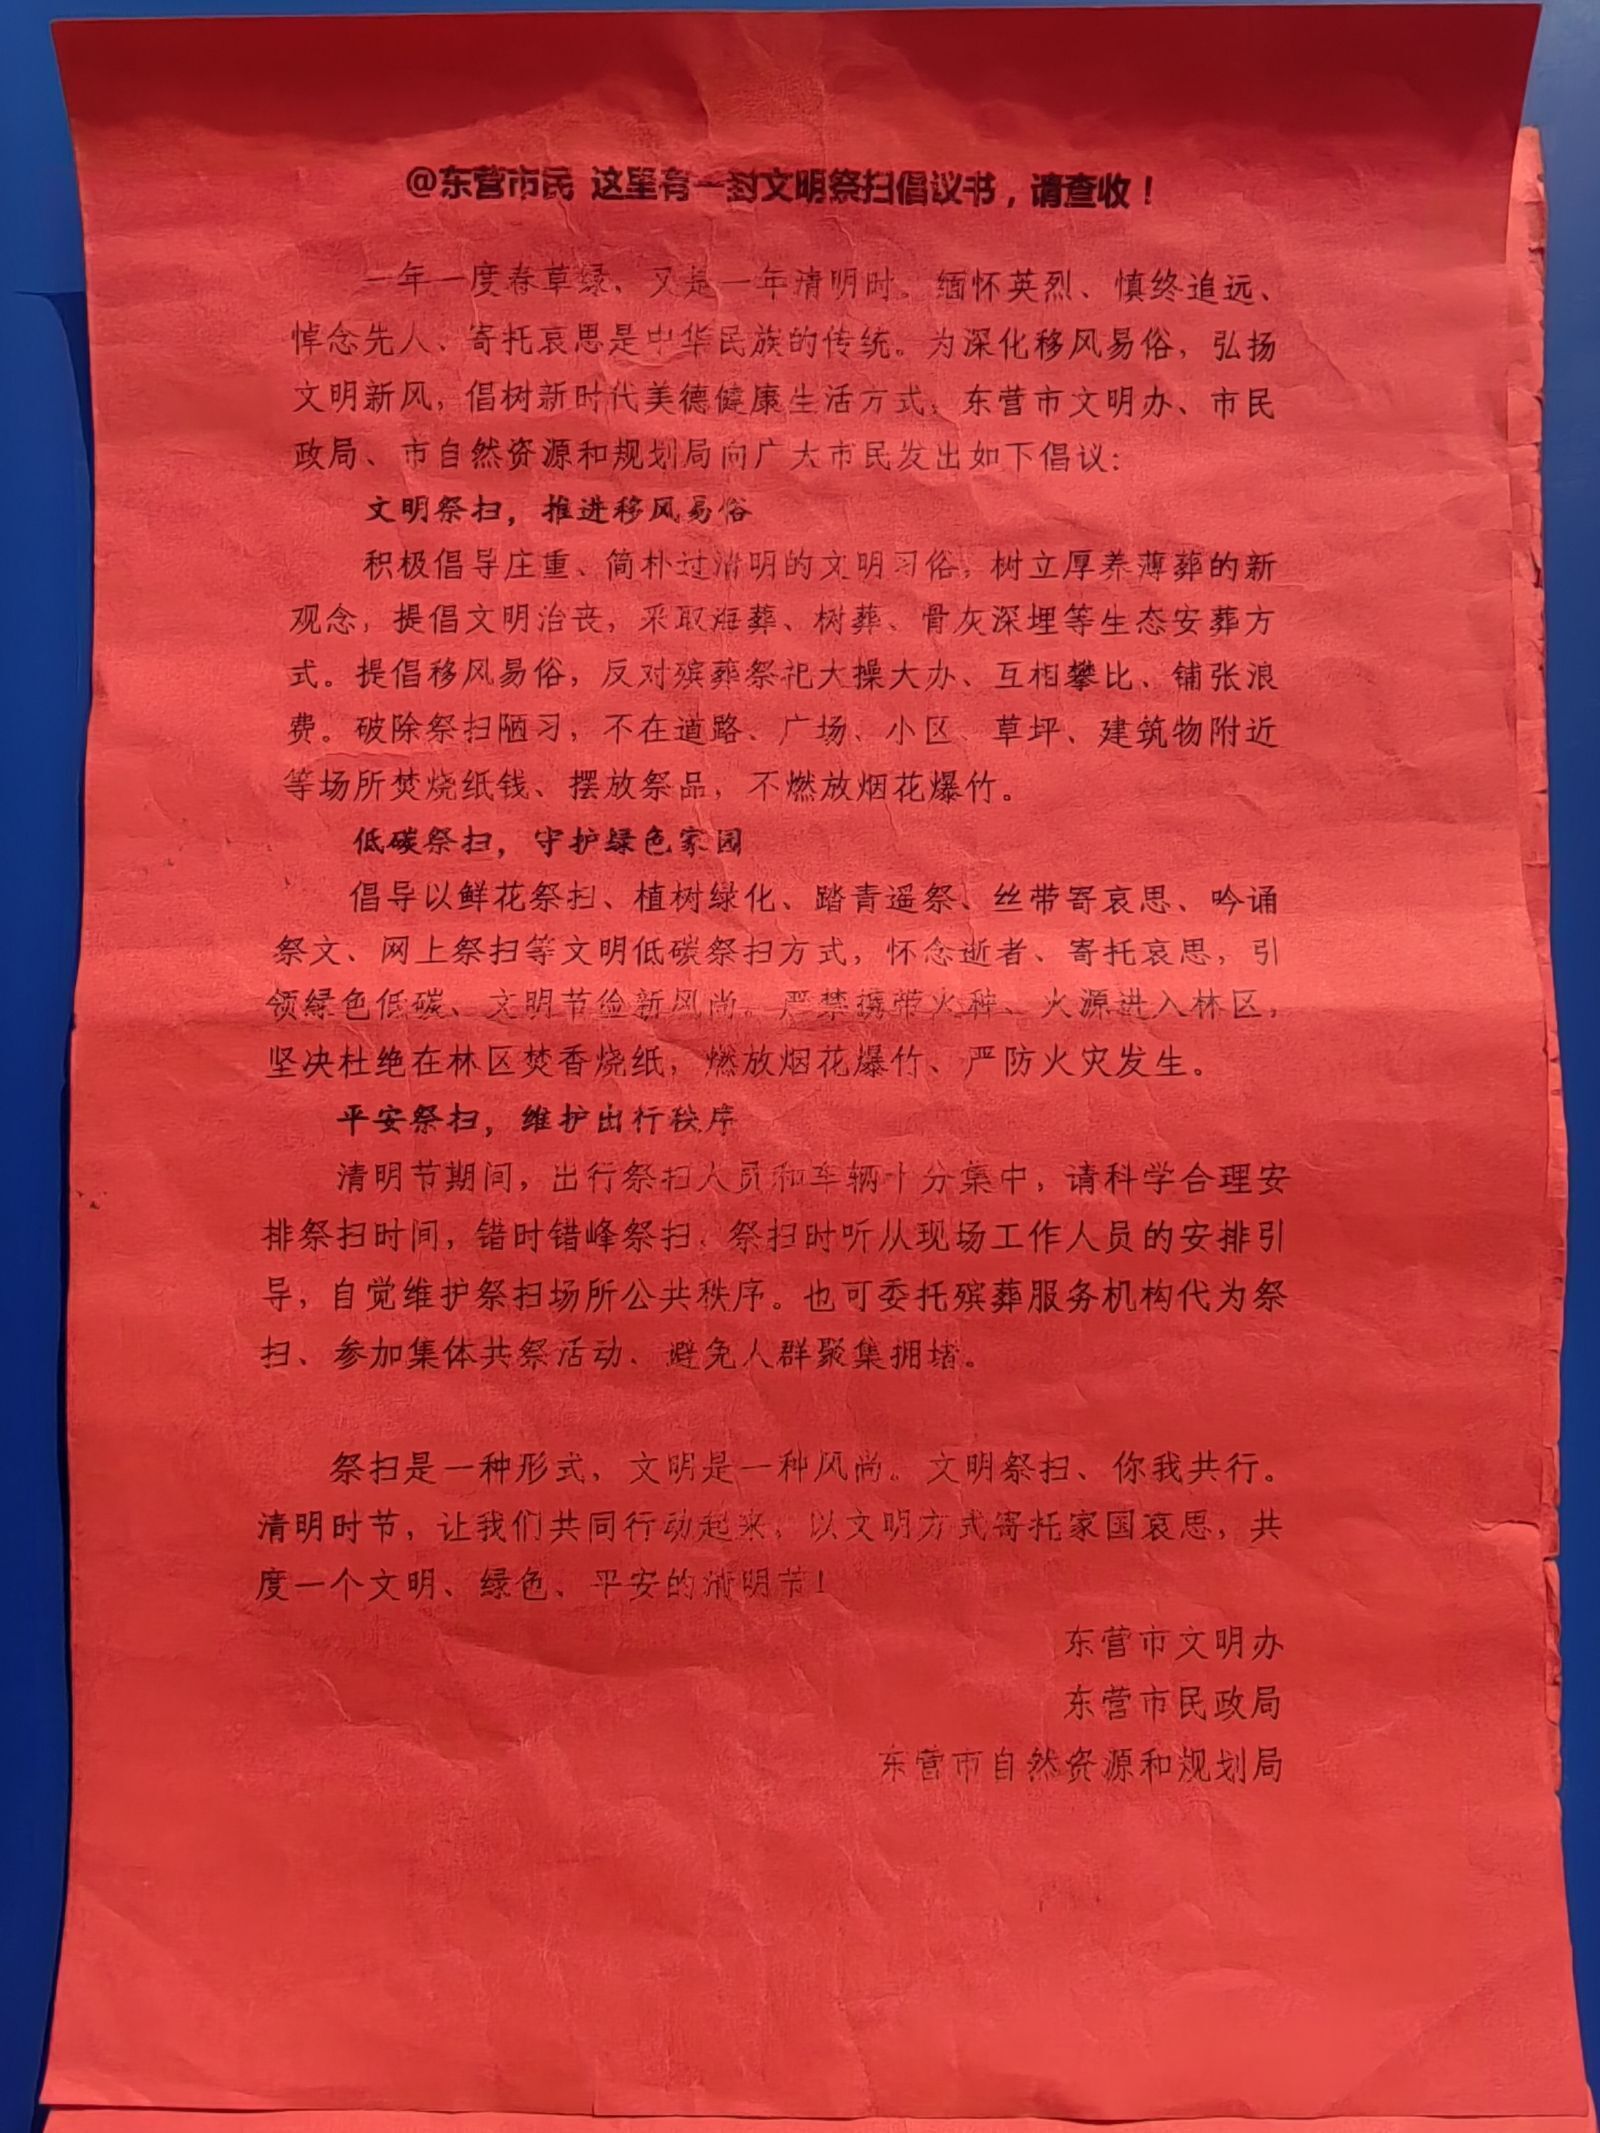 @东营市民 这里有一封文明祭扫倡议书，请查收！
一年一度春草绿，又是一年清明时。缅怀英烈、慎终追远、
悼念先人、寄托哀思是中华民族的传统。为深化移风易俗，弘扬
文明新风，倡树新时代美德健康生活方式，东营市文明办、市民
政局、市自然资源和规划局向广大市民发出如下倡议：
文明祭扫，推进移风易俗
积极倡导庄重、简朴过清明的文明习俗，树立厚养薄葬的新
观念，提倡文明治丧，采取海葬、树葬、骨灰深埋等生态安葬方
式。提倡移风易俗，反对殡葬祭祀大操大办、互相攀比、铺张浪
费。破除祭扫陋习，不在道路、广场、小区、草坪、建筑物附近
等场所焚烧纸钱、摆放祭品，不燃放烟花爆竹。
低碳祭扫，守护绿色家园
倡导以鲜花祭扫、植树绿化、踏青遥祭、丝带寄哀思、吟诵
祭文、网上祭扫等文明低碳祭扫方式，怀念逝者、寄托哀思，引
领绿色低碳、文明节俭新风尚。严禁携带火种、火源进入林区，
坚决杜绝在林区焚香烧纸，燃放烟花爆竹、严防火灾发生。
平安祭扫，维护出行秩序
清明节期间，出行祭扫人员和车辆十分集中，请科学合理安
排祭扫时间，错时错峰祭扫，祭扫时听从现场工作人员的安排引
导，自觉维护祭扫场所公共秩序。也可委托殡葬服务机构代为祭
扫、参加集体共祭活动、避免人群聚集拥堵。
祭扫是一种形式，文明是一种风尚。文明祭扫、你我共行。
清明时节，让我们共同行动起来，以文明方式寄托家国哀思，共
度一个文明、绿色、平安的清明节！
东营市文明办
东营市民政局
东营市自然资源和规划局